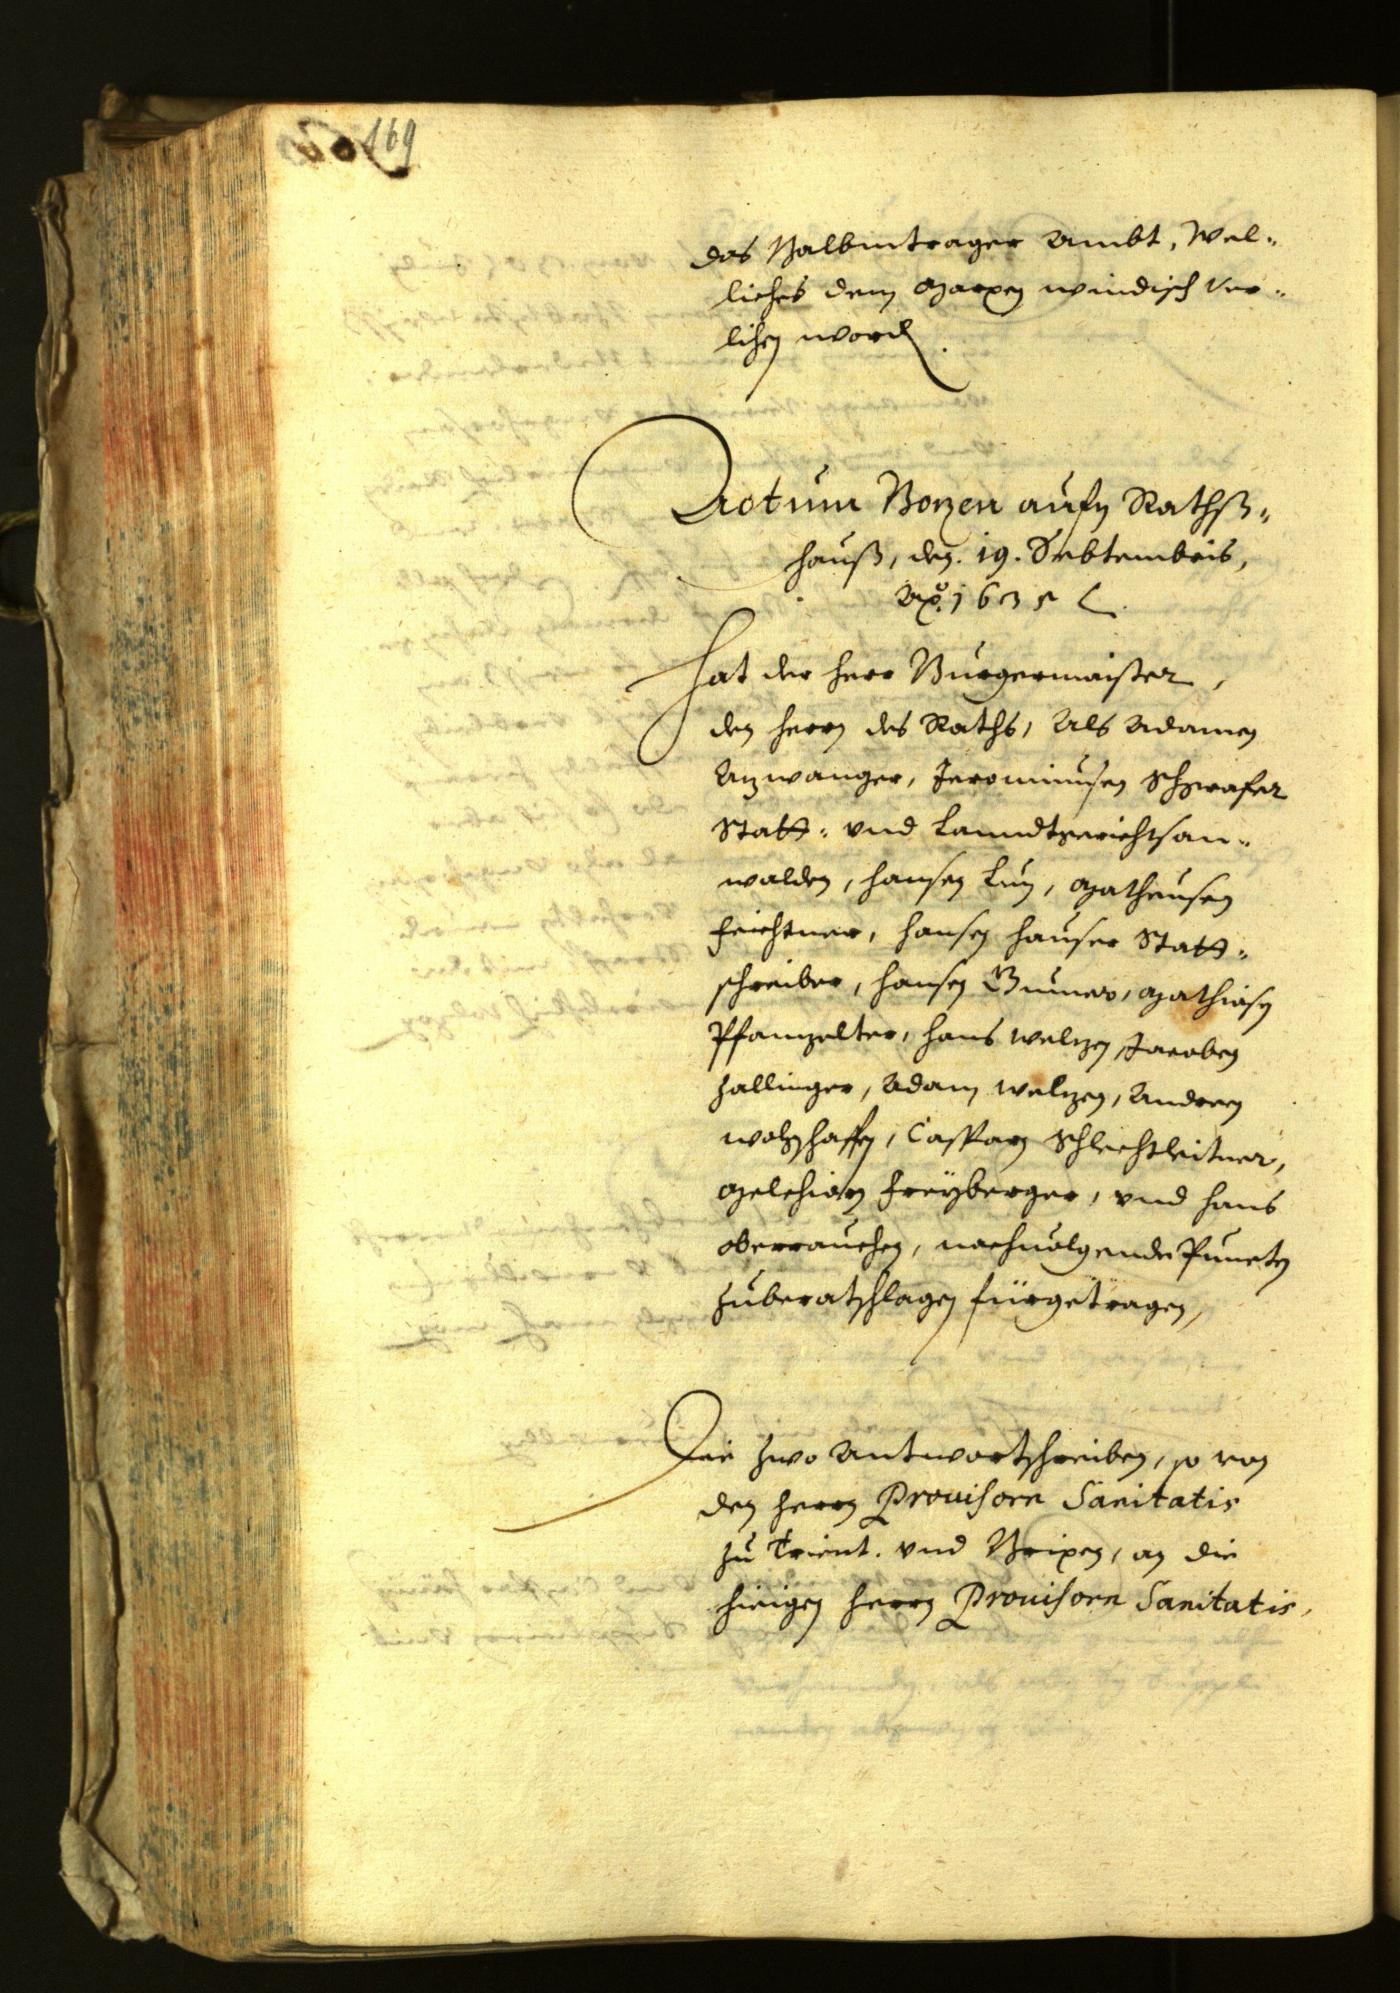 169
das Balbintrager Ambt, Wel-
liches dem Marxen windisch ver-
lihen word.
Actum Bozen aufn Rathß-
hauß, den. 19. Sebtembris,
Aõ. 1635
Hat der herr Burgermaister,
den herrn des Raths, Als Adamen
Azwanger, Jeronimusen Schgrafer
Statt- vnd Lanndtgerichtsan-
walden, hansen Lun, Matheusen
Feichtner, hansen hauser Statt-
schreiber, hansen Gumer, Mathiasn
Pfanzelter, hans Welzen, Jacoben
Zallinger, Adam Welzen, Andreen
wolfshaffn, Casparn Schlechtleitner,
Melchiorn Freyberger, vnd hans
oberrauchen, nachuolgende Puncten
zuberatschlagen fürgetragen,
Die zwo Antwortschreiben, so von
den herrn Prouisorn Sanitatis
zu Trient. vnd Brixen, an die
hieigen herrn Prouisorn Sanitatis,